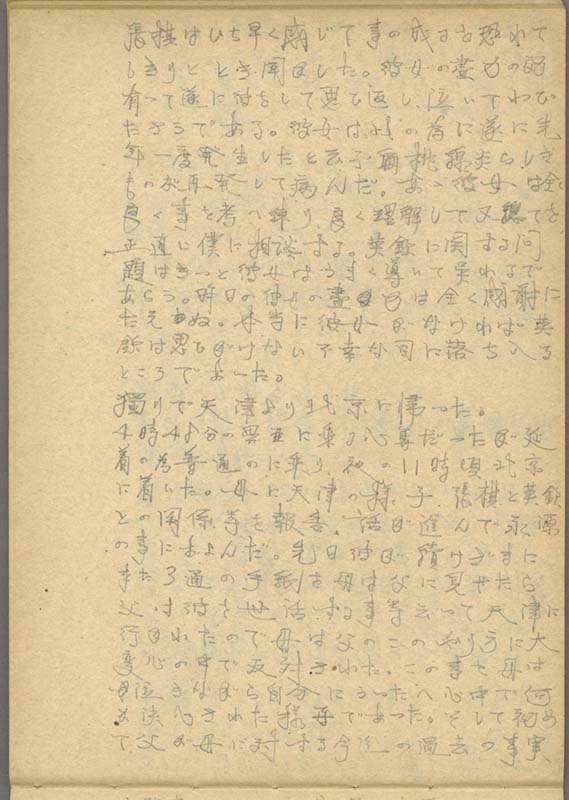 張棋はいち早く感じて事の成行を恐れて
しきりととき聞した。彼女の盡力の
有って遂に彼をして思ひ返し、泣いてわび
たさうである。彼女はその為に遂に先
年一度発生したと云ふ扁桃腺炎らしき
ものが再発して病んだ。あゝ彼女は全く
良く事を考へ練り良く理解して又総てを
正直に僕に相談する。英欽に関する問
題はきっと彼女はうまく導いて呉れるで
あらう。昨日の彼女の盡力は全く感謝に
たえぬ。本当に彼女がなければ英
欽は思ひがけない不幸な司に落ち入る
ところであった。
獨りで天津より北京に帰った。
4時48分の興亜に乗り込む筈だったが延
着の為普通のに乗り、夜の11時頃北京
に着いた。母に天津の様子、張棋と英欽
との関係等を報告、話が進んで永源
の事におよんだ。先日彼が續けざまに
よこた3通の手紙を母は父に見せたら
父は彼を世話する事等云って天津に
行かれたので母は父のこのやり方に大
変心の中で反対された。この事を母は
泣きながら自分にうったへ心中で何
か決心された様子であった。そして初め
て父が母に対する今迄の過去の事実